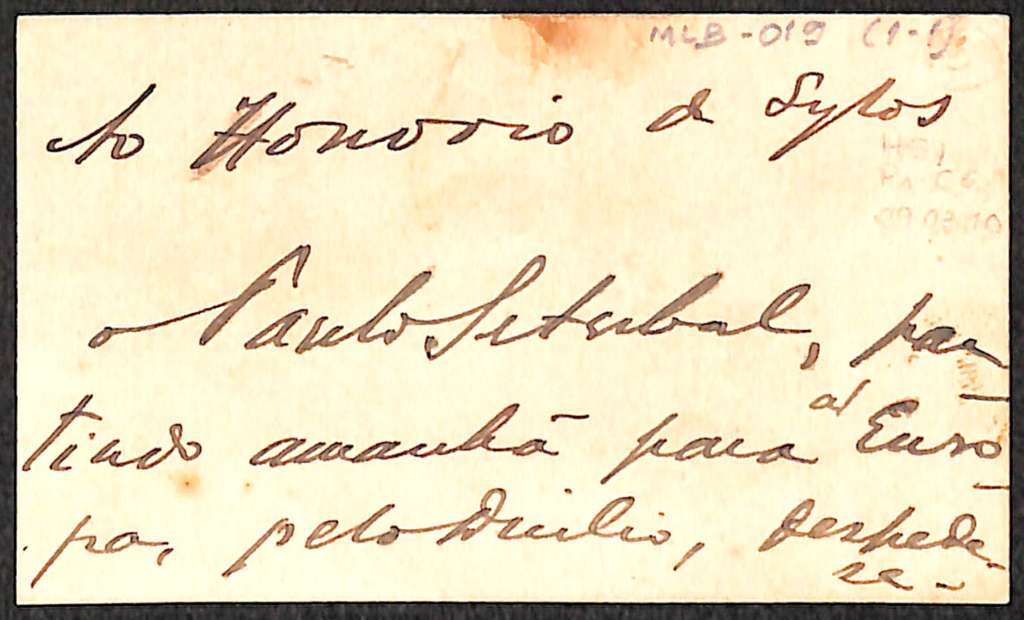 MLB-019 (1-1)
Ao Honorio de Sylos
o Paulo Setubal, par
tindo amanhã para a Euro
pa, pelo Duilio, despede-
se-